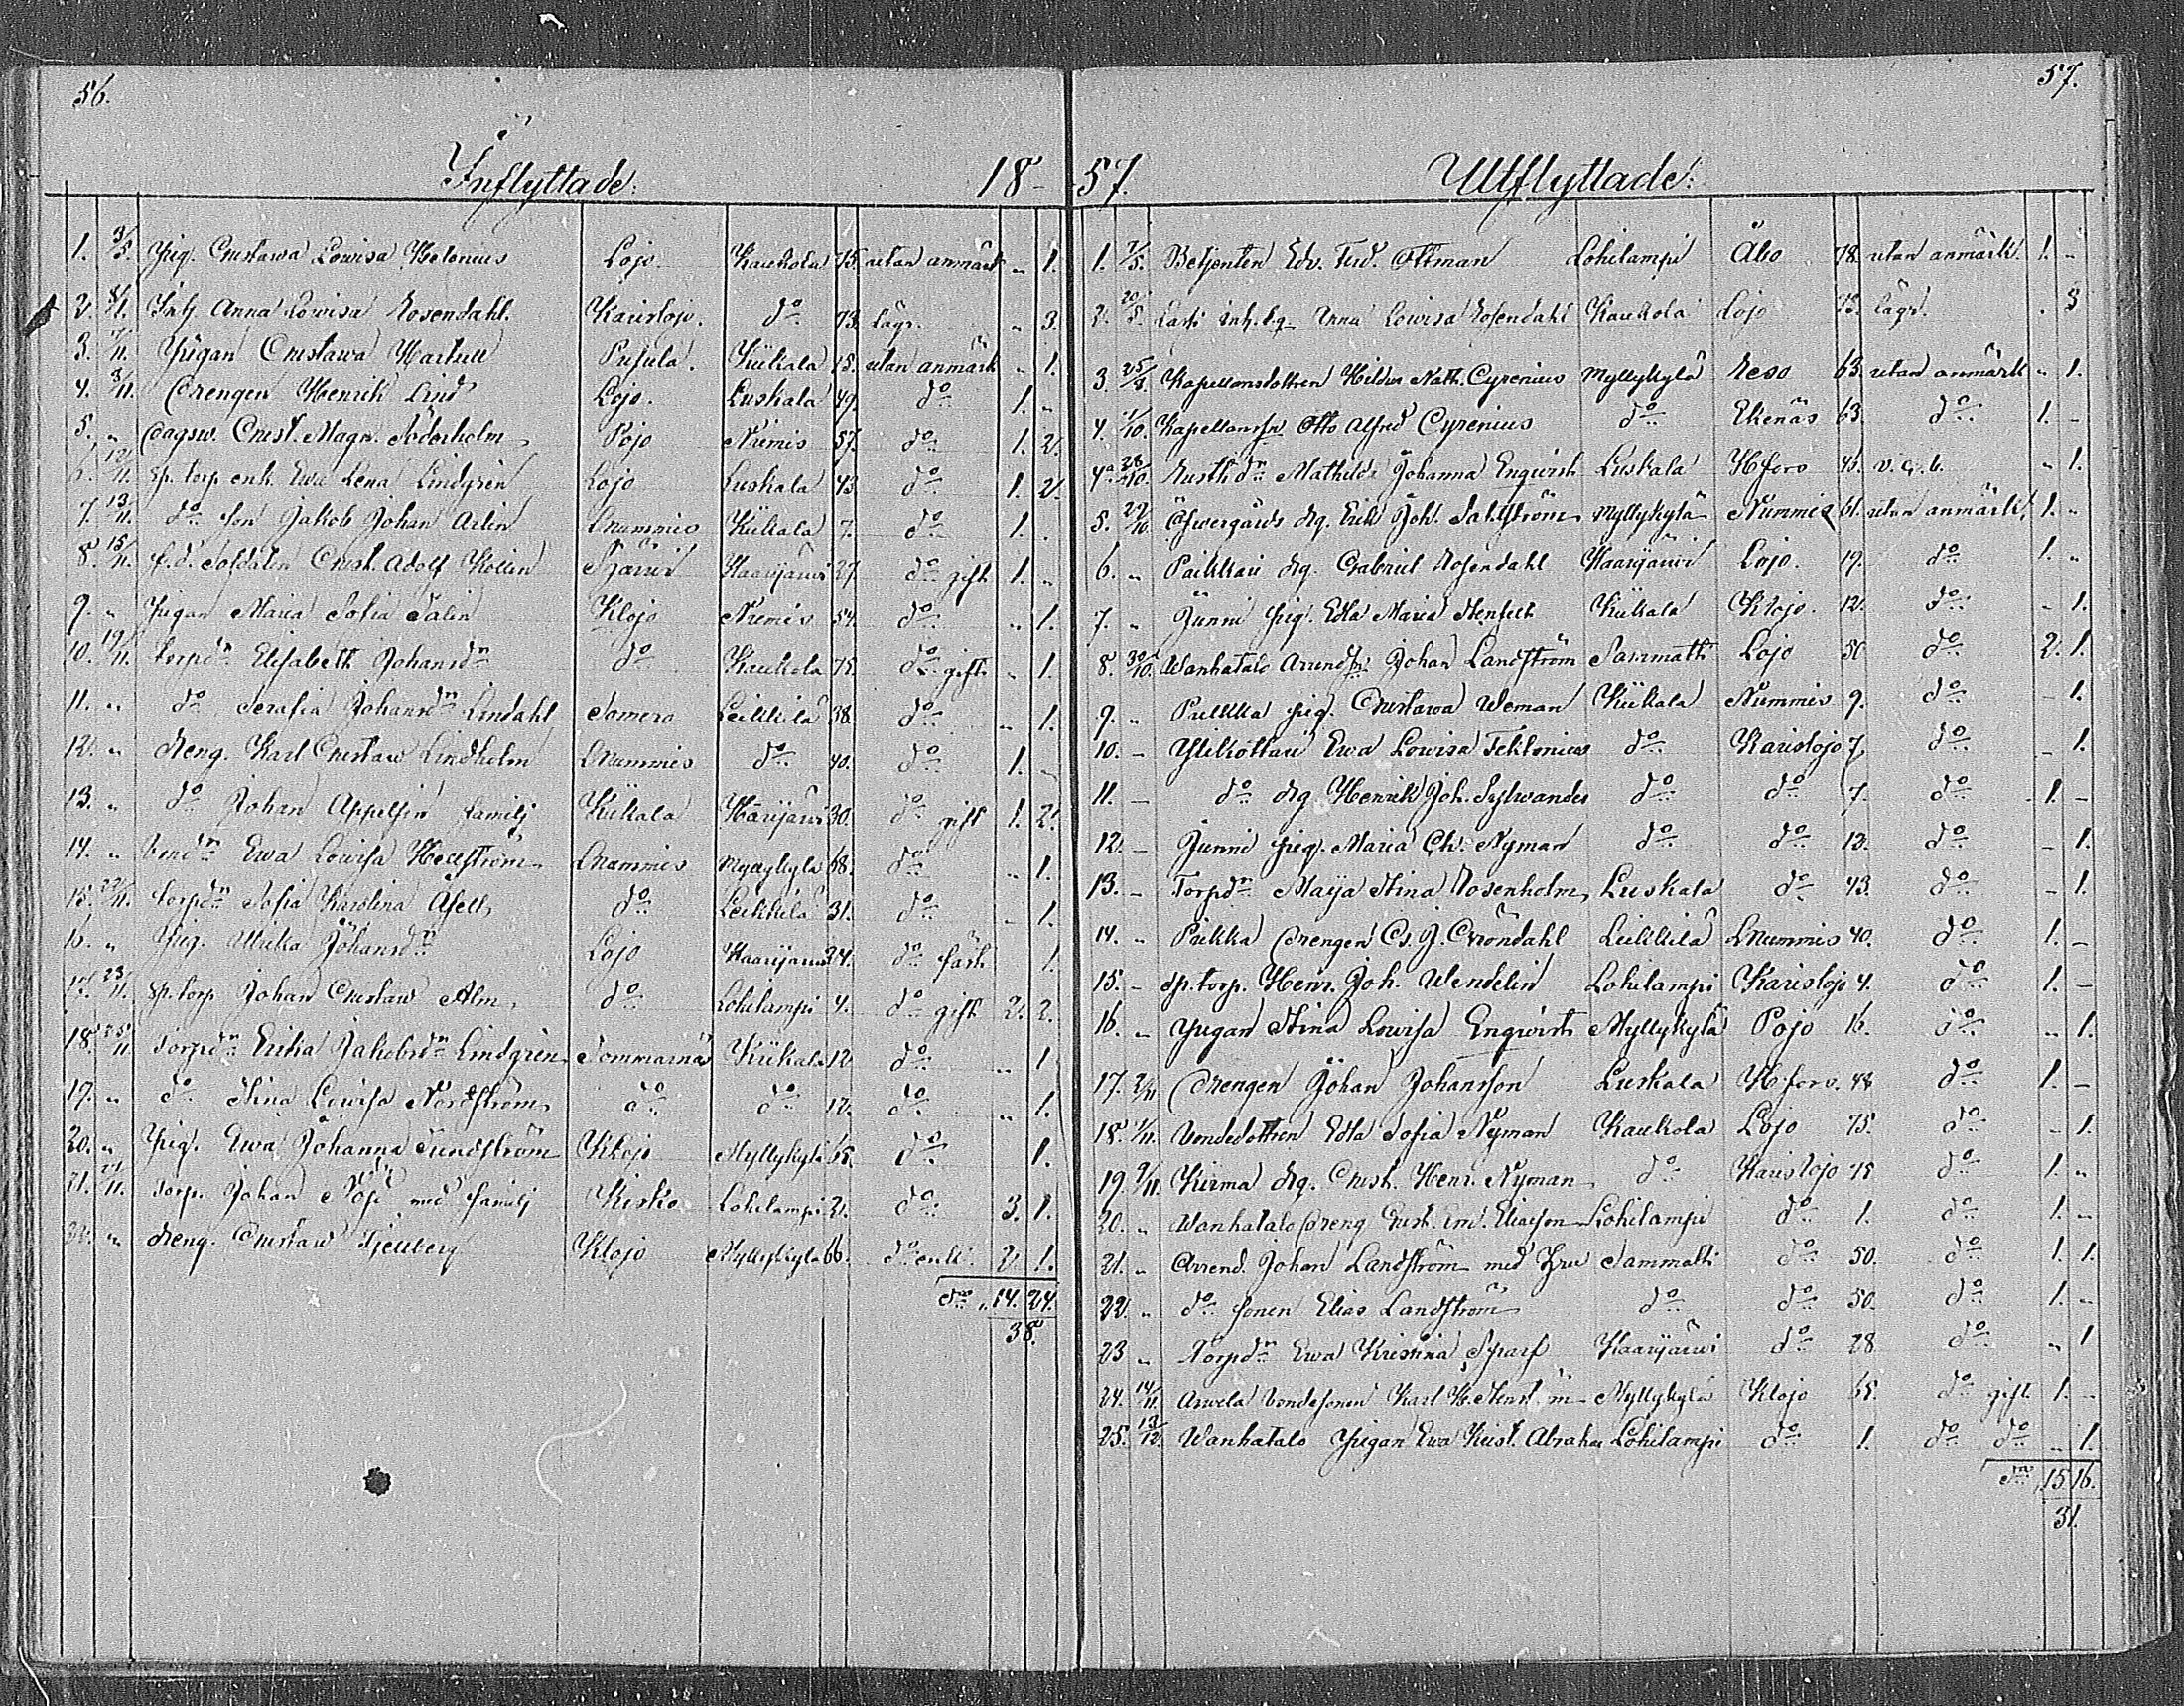 56.
Inflyttade. 18
1. 3/5. Pig. Gustawa Lowisa Helenius Lojo Kaukola 75. utan anmärk " 1.
2. Inh. Anna Lowisa Rosendahl. Karislojo. do 73. lägr. " 3.
3. Pigan Gustawa Pusula. Kiikala 15. utan anmärk " 1.
4. Drengen Henrik Lind Lojo. Luskala 49. do 1. "
5. " Gust. Magn. Söderholm Pojo Niemis 57. do 1. 2.
6. 12/11. Sp. torp. enk. Ewa Lena Lindgren Lojo Luskala 43. do 1. 2.
7. 13/11. do son Jakob Johan Arlin Nummis Kiikala 7. do 1.
8. 15/11. f.d. Soldaten Gust. Adolf Kollin Haarijärwi 27. do gift 1. "
9. " Pigan Maria Sofia Salin Klojo Niemis 54. do " 1.
10. 19/11. torpdn Elisabeth Johansdn do Kaukola 75. do gift. " 1.
11. " do Serafia Johansdn Lindahl Somero Leikkilä 38. do " 1.
12. " dreng. Karl Gustaw Lindholm Nummis do 40. do 1. "
13. " do Johan Appelgren familj Kiikala Haarijärwi 30. do gift 1. 2.
14. " Bondn Ewa Lowisa Hellström Nummis Myllykylä 68. do " 1.
15. 22/11. torpdn Sofia Karolina Asell do Leikkilä 31. do " 1.
16. " Pig. Ulrika Johansdn Lojo Haarijärwi 24. do 1.
17. 23/11. Sp. torp. Johan Gustaw Alm do Lohilampi 4. do gift 2. 2.
18. 25/11. Torpdn Erika Jakobsdn Lindgren Sommarnäs Kiikala 12 do " 1.
19. " do Stina Lowisa Nordström do do 12. do " 1.
20. " Pig. Ewa Johanna Sundström Klojo Myllykylä 65. do 1.
21. 27/11. Torp. Johan med familj Kisko Lohilampi 2. do 3. 1.
22. " dreng. Gustaw Fjellberg Klojo Myllykylä 66. do enkl. 2. 1.
Sm " 14. 24.
38.
57.
57. Utflyttade.
1. 7/5. Betjenten Edv. Ferd. Ottman Lohilampi Åbo 78. utan anmärk. 1. "
2. 20/5. Inh. Anna Lowisa Rosendahl Kaukola Lojo 73. lägr. " 3
3. 25/8. Kapellansdottren Hilda Nath. Cyrenius Myllykylä Reso 63. utan anmärk " 1.
4. 1/10. Kapellansson Otto Alfred Cyrenius do Ekenäs 63. do 1. -
4a 28/10. Rusthdn Mathilda Johanna Enqvist Luskala Hfors 45. " 1.
5. 29/10. drg. Erik Joh. Sahlström Myllykylä Nummis 61. utan anmärk. 1. "
6. " Paikkari drg. Gabriel Rosendahl Haarijärwi Lojo. 19. do 1. "
7. " Junni pig. Edla Maria Stenfelt Kiikala Klojo. 12. do - 1.
8. 30/10. Wanhatalo Arrendsn Johan Landström Sammatti Lojo 50 do 2. 1.
9. " Pukkka pig. Gustawa Weman Kiikala Nummis 9. do - 1.
10. - Ylikottari Ewa Lowisa Teklonius do Karislojo 7. do - 1.
11. - do drg Henrik Joh. Sylwander do do 7. do 1. -
12. - Junni pig. Maria Ch. Nyman do do 13. do - 1.
13. - Torpdn Maija Stina Rosenholm Luskala do 43. do - 1.
14. " Pukka Drengen G. J. Gröndahl Leikkilä Nummis 40. do 1. -
15. - Sp. torp. Henr. Joh. Wendelin Lohilampi Karislojo 4. do 1. -
16. " Pigan Stina Lowisa Enqwist Myllykylä Pojo 16. do " 1.
17. 2/11 Drengen Johan Johansson Luskala Hfors. 48 do 1. -
18. 7/11. Bondedottren Edla Sofia Nyman Kaukola Lojo 75. do - 1.
19. 9/11. Kiirma drg. Gust. Henr. Nyman do Karislojo 75 do 1. "
20. " Wanhatalo Dreng Gust. Em. Eliasson Lohilampi do 1. do 1. "
21. " Arrend. Johan Landström med Fru Sammatti do 50. do 1. 1.
22. " do sonen Elias Landström do do 50. do 1. "
23 " Torpdn Ewa Kristina Sparf Haarijärwi do 28 do " 1
24. 14/11. Arwela Bondesonen Karl H. Myllykylä Klojo 65. do gift 1. -
25. 13/12. Wanhatalo Pigan Ewa Krist. Abraha Lohilampi do 1. do do " 1.
Sm 15. 16.
31.